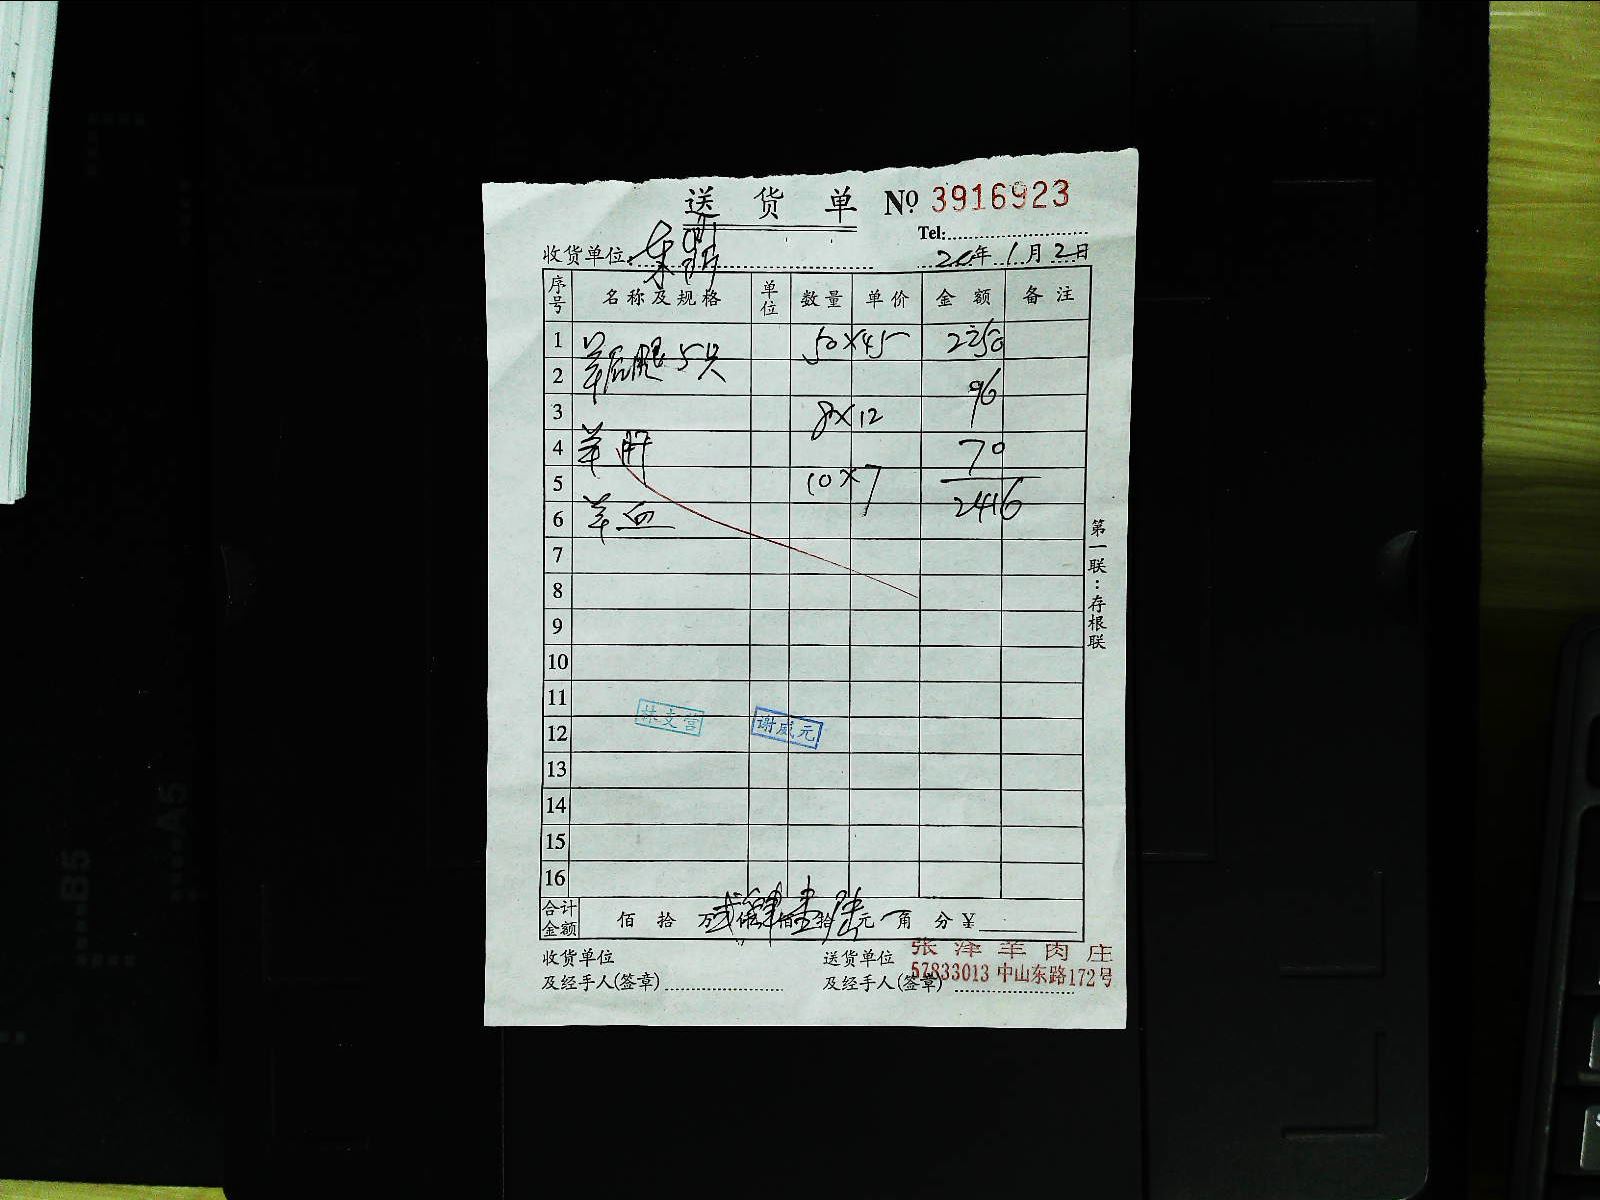 送 货 单 Nº 3916923
Tel:
收货单位: 东明 20年1月2日
序号 名称及规格 单位 数量 单价 金额 备注
1 羊后腿5只 50×45 2250
2 96
3 8×12
4 羊肝 70
5 10×7 2416
6 羊血
7
8
9
10
11
12
13
14
15
16
林支营 谢威元
合计金额 佰 拾 万贰仟肆佰壹拾陆元 角 分 ¥
收货单位 送货单位 张泽羊肉庄
及经手人(签章) 及经手人(签章) 57833013 中山东路172号
第一联:存根联
B5
A5